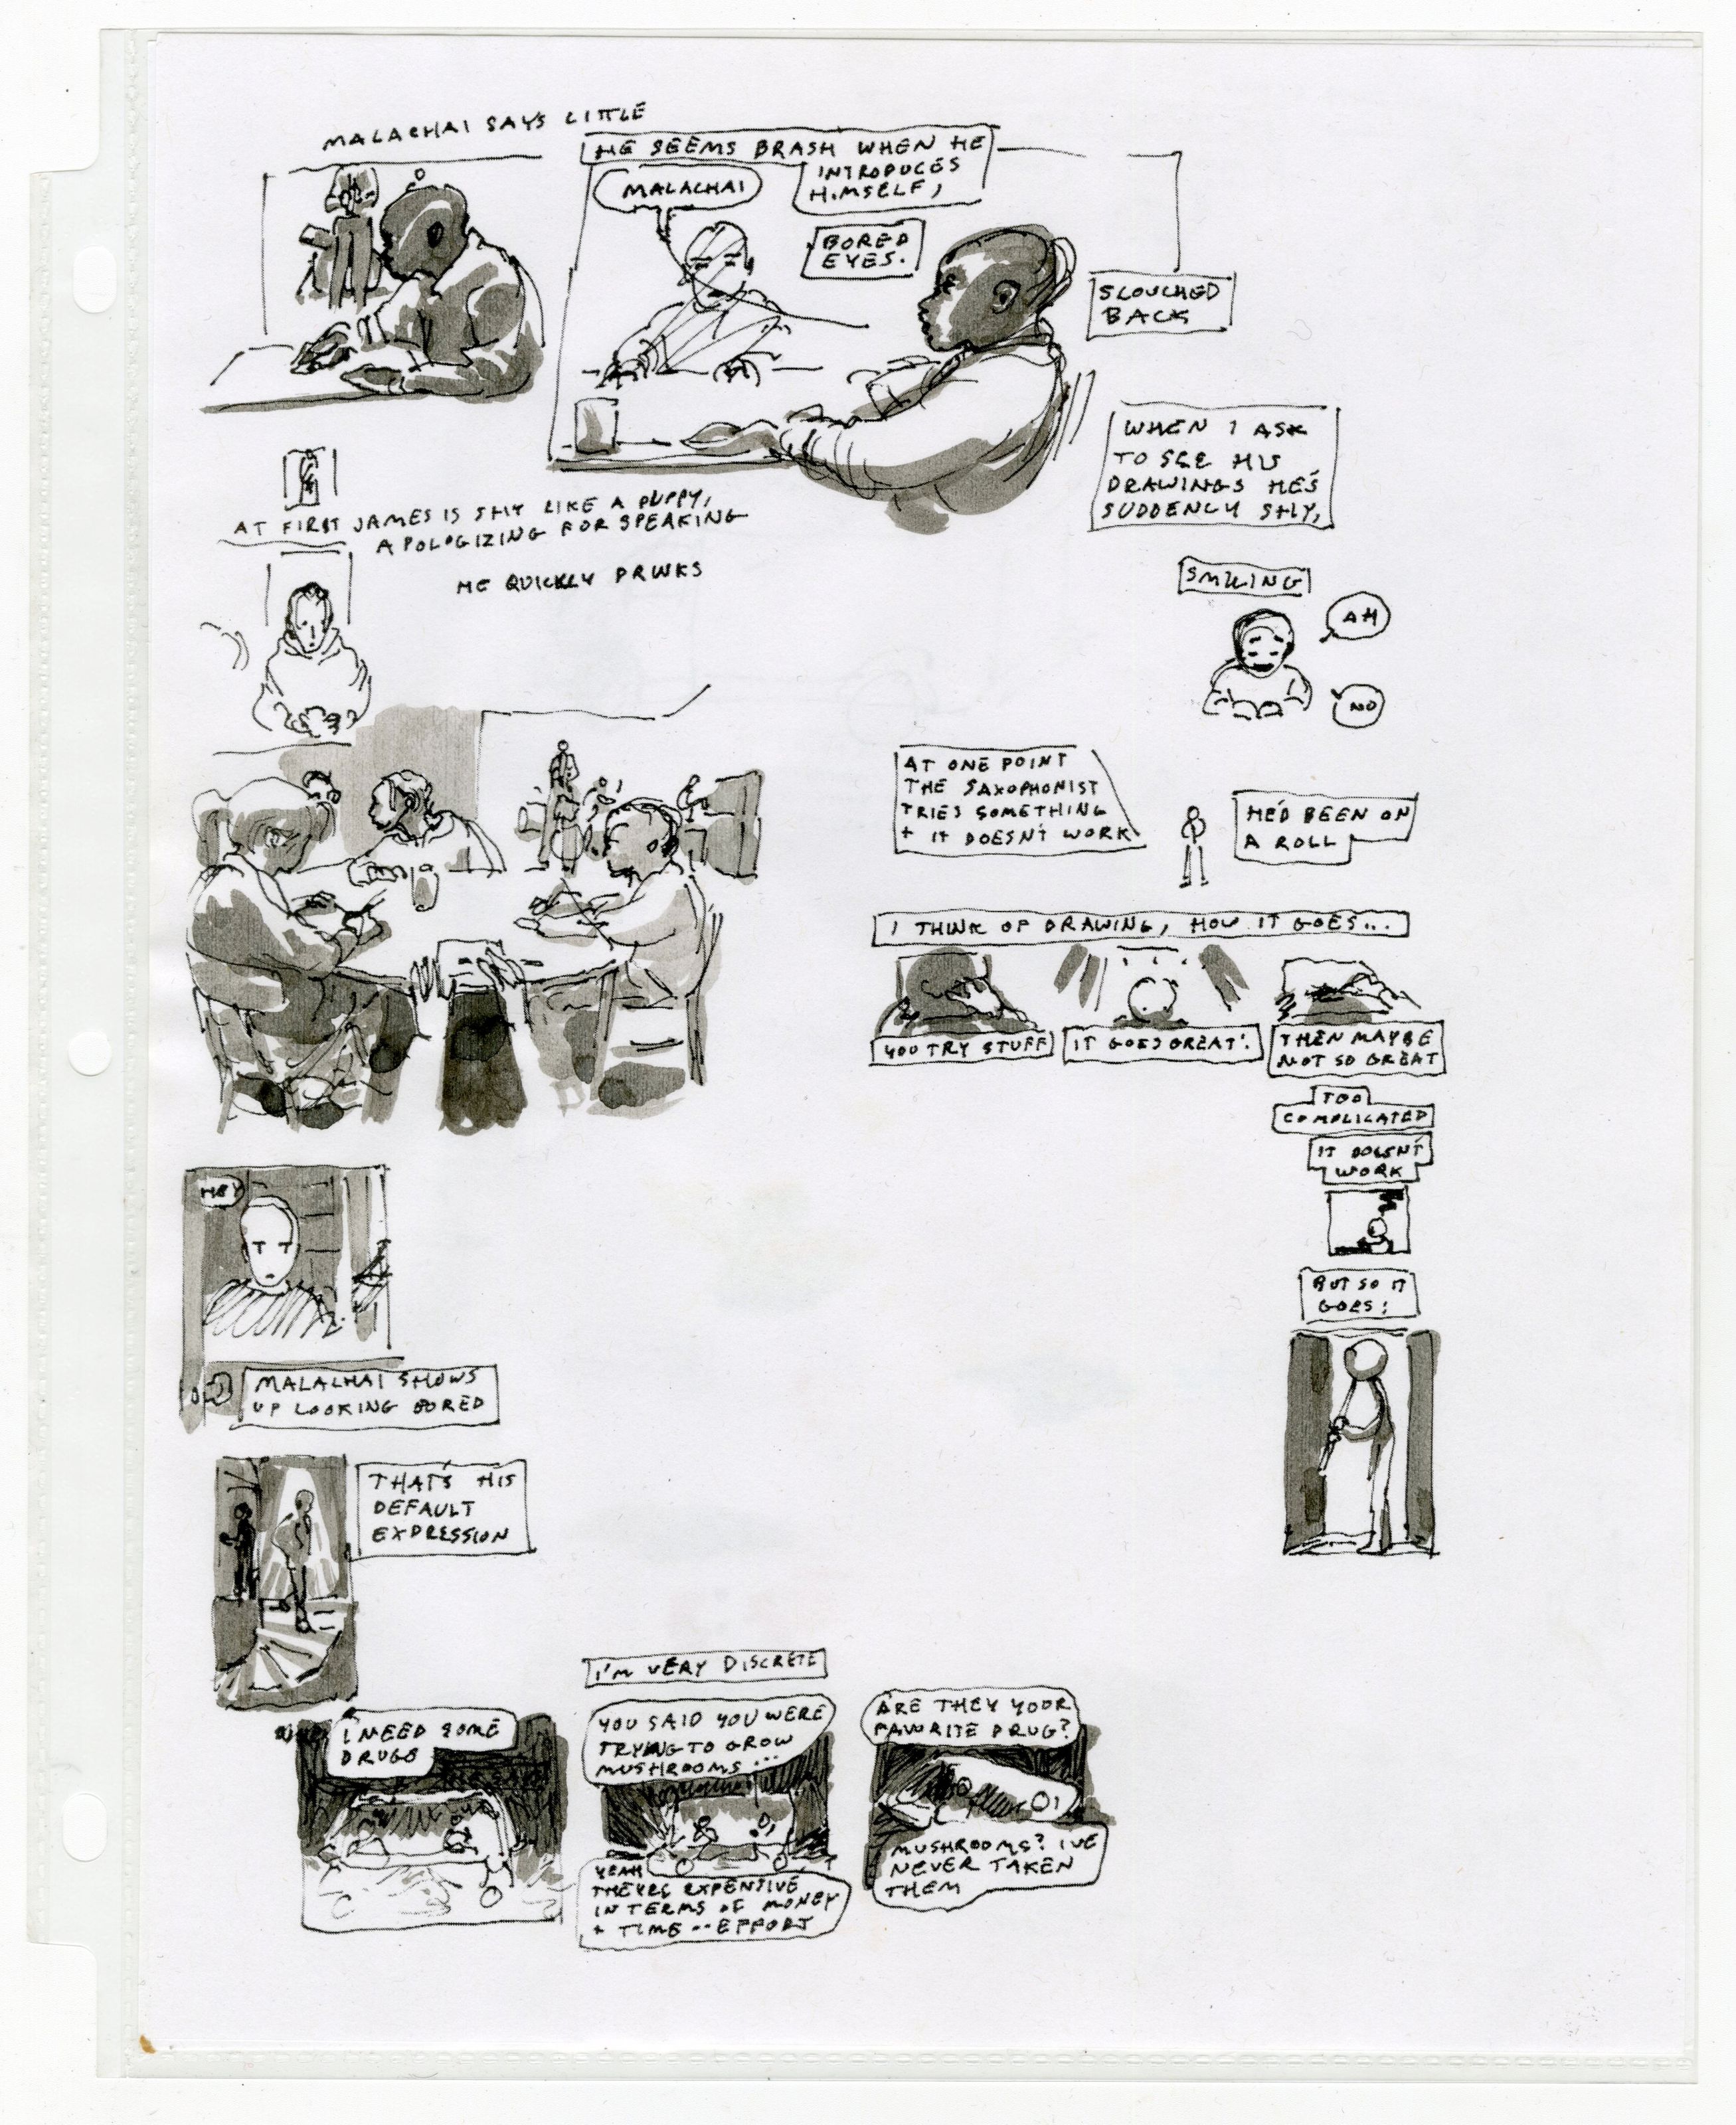 MALACHAI SAYS LITTLE
HE SEEMS BRASH WHEN HE
INTRODUCES
HIMSELF,
MALACHAI
BORED
EYES.
SLOUCHED
BACK
WHEN I ASK
TO SEE HIS
DRAWINGS HE'S
SUDDENLY SHY,
SMILING
AH
NO
AT FIRST JAMES IS SHY LIKE A PUPPY,
APOLOGIZING FOR SPEAKING
HE QUICKLY DRINKS
AT ONE POINT
THE SAXOPHONIST
TRIES SOMETHING
+ IT DOESN'T WORK
HE'D BEEN ON
A ROLL
I THINK OF DRAWING, HOW IT GOES...
YOU TRY STUFF
IT GOES GREAT.
THEN MAYBE
NOT SO GREAT
TOO
COMPLICATED
IT DOESN'T
WORK
BUT SO IT
GOES:
HEY
MALACHAI SHOWS
UP LOOKING BORED
THAT'S HIS
DEFAULT
EXPRESSION
I NEED SOME
DRUGS
I'M VERY DISCRETE
YOU SAID YOU WERE
TRYING TO GROW
MUSHROOMS...
YEAH
THEYRE EXPENSIVE
IN TERMS OF MONEY
+ TIME -- EFFORT
ARE THEY YOUR
FAVORITE DRUG?
MUSHROOMS? I'VE
NEVER TAKEN
THEM